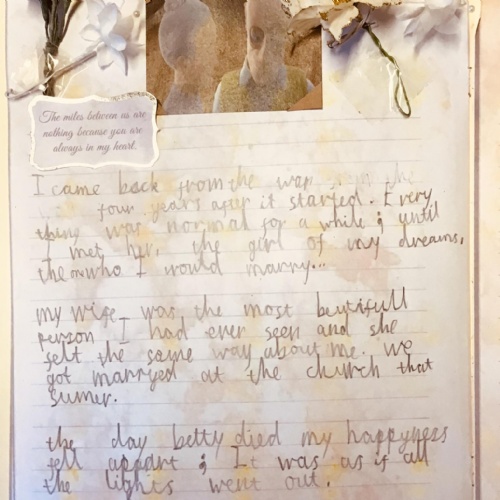 The miles between us are
nothing because you are
always in my heart.
I came back from the war from the
four years after it started. Every
thing was normal for a while ; until
I met her, the girl of my dreams,
the one who I would marry...
my wife was the most beutifull
person I had ever seen and she
felt the same way about me. We
got marryed at the church that
sumer.
the day betty died my happyness
fell appart ; It was as if all
the lights went out.